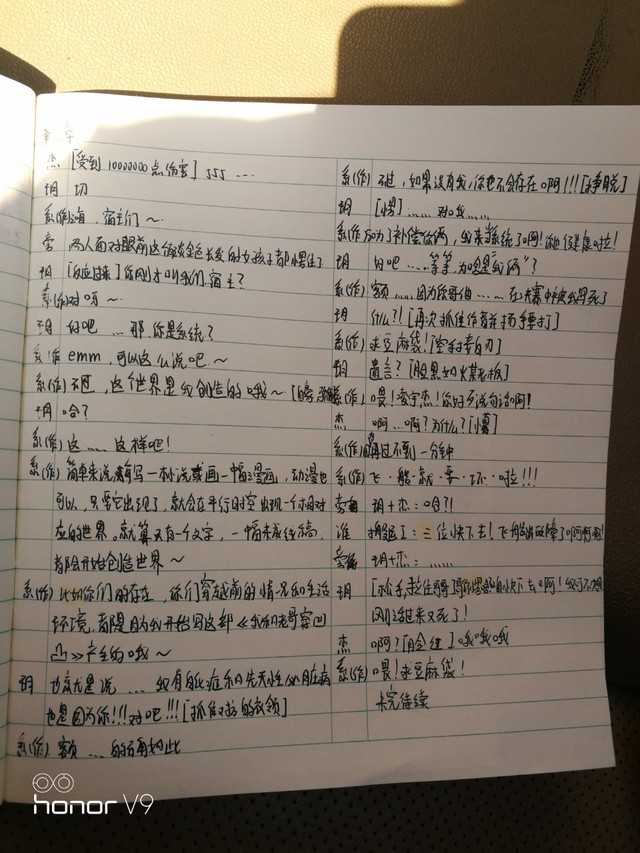 杰 [受到10000000点伤害] 555 ...
玥 切
系(作) 嗨,宿主们～
旁 两人面对眼前这个淡金色长发的女孩子都愣住了
玥 [反应过来] 你刚才叫我们宿主?
系(作) 对呀～
玥 好吧 ... 那,你是系统?
系(作) emm,可以这么说吧～
系(作) 不过,这个世界是我创造的哦～
玥 哈?
系(作) 这 ..... 这样吧!
系(作) 简单来说,写一本小说或画一幅漫画,动漫也
可以,只要它出现了,就会在平行时空出现一个相对
应的世界。就算只有一个文字,一幅未成线稿,
都会开始创造世界～
系(作) 比如你们的存在,你们穿越前的情况和生活
环境,都是因为我开始写这部《我和老哥穿凹
凸》产生的哦～
玥 也就是说 ... 我有自闭症和先天性心脏病
也是因为你!!!对吧!!![抓住对方的衣领]
系(作) 额 .... 的确如此
系(作) 不过,如果没有我,你也不会存在啊!!![挣脱]
玥 [愣] ..... 对哦 .....
系(作) 为了补偿你俩,我来当系统了啊!
玥 好吧 .... 等等,为啥是"我俩"?
系(作) 额 .... 因为你哥他 ..... 在决赛中被我写死了
玥 什么?![再次抓住作者并扬手要打]
系(作) 求豆麻袋![空手接白刃]
玥 遗言?[脸黑如煤老板]
系(作) 喂!凌宇杰!你好歹说句话啊!
杰 啊 ... 啊?为什么?[懵]
系(作) 再过不到一分钟
系(作) 飞·船·就·要·坏·啦!!!
旁 玥+杰:哈?!
谁 三位快下去!飞船出故障了啊啊啊!
旁 玥+杰:......
玥 [松手,赶住哥哥] 快下去啊!我可不想
刚活过来又死了!
杰 啊?[脸红] 哦哦哦
系(作) 喂!求豆麻袋!
未完待续
honor V9